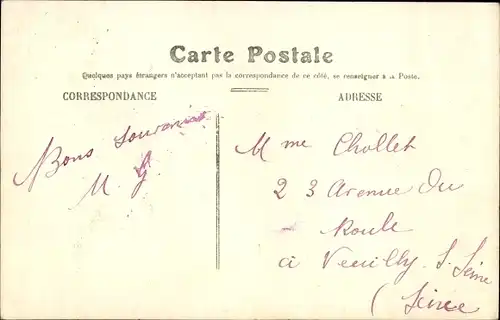 Carte Postale
Quelques pays étrangers n'acceptant pas la correspondance de ce côté, se renseigner à la Poste.
CORRESPONDANCE
ADRESSE
Bons souvenirs
M. G.
Mme Chollet
23 Avenue du
Roule
à Neuilly. S. Seine
(Seine